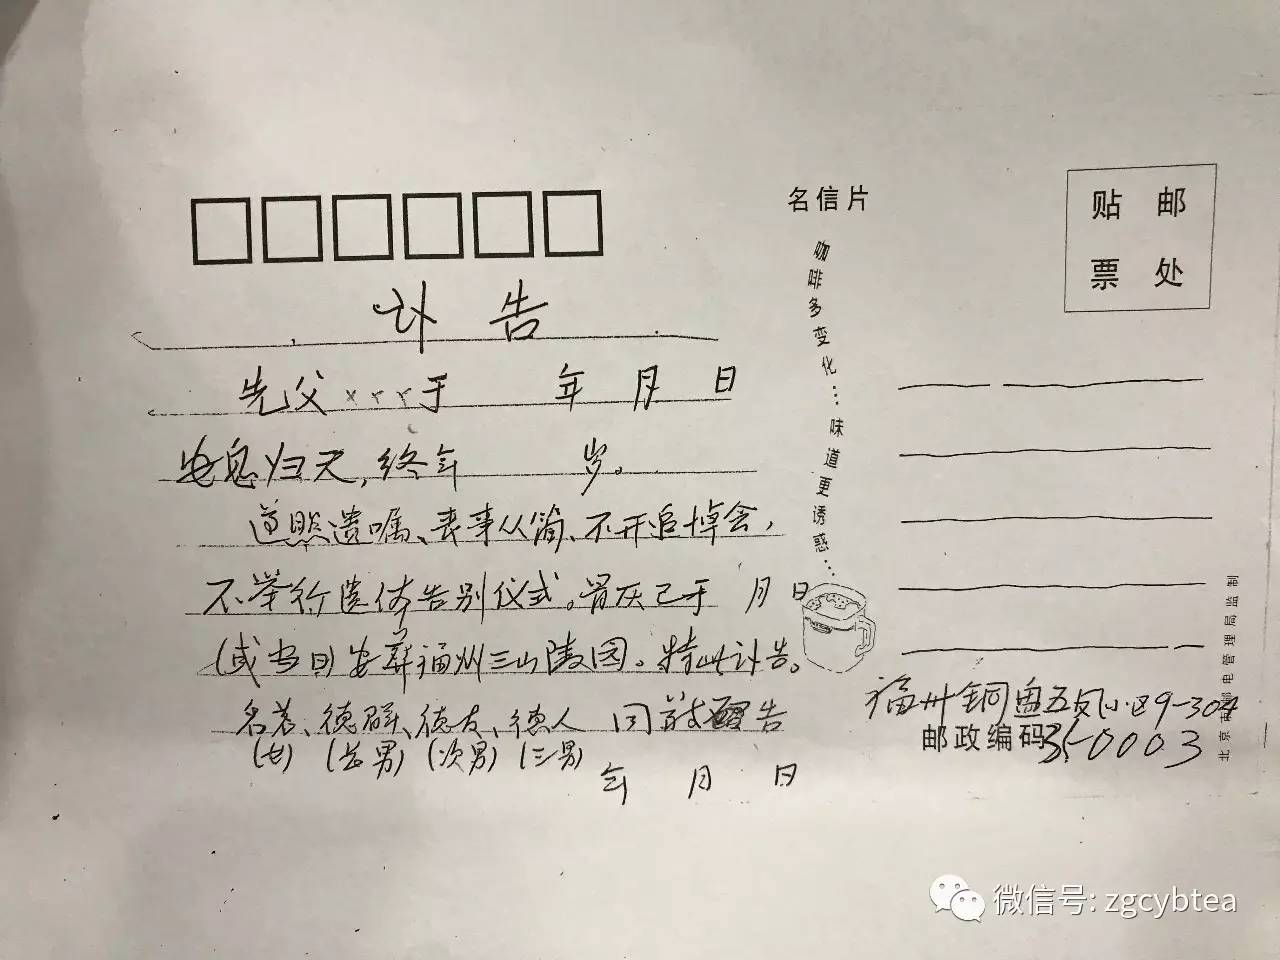 名信片
贴邮
票处
讣告
先父×××于 年 月 日
安息归天,终年 岁。
遵照遗嘱、丧事从简、不开追悼会,
不举行遗体告别仪式。骨灰已于 月 日
(或当日)安葬福州三山陵园。特此讣告。
德群、德友、德人 同敬告
(女) (长男) (次男) (三男)
年 月 日
咖啡多变化…味道更诱惑…
福州铜盘五凤小区9-304
邮政编码350003
北京市邮电管理局监制
微信号: zgcybtea